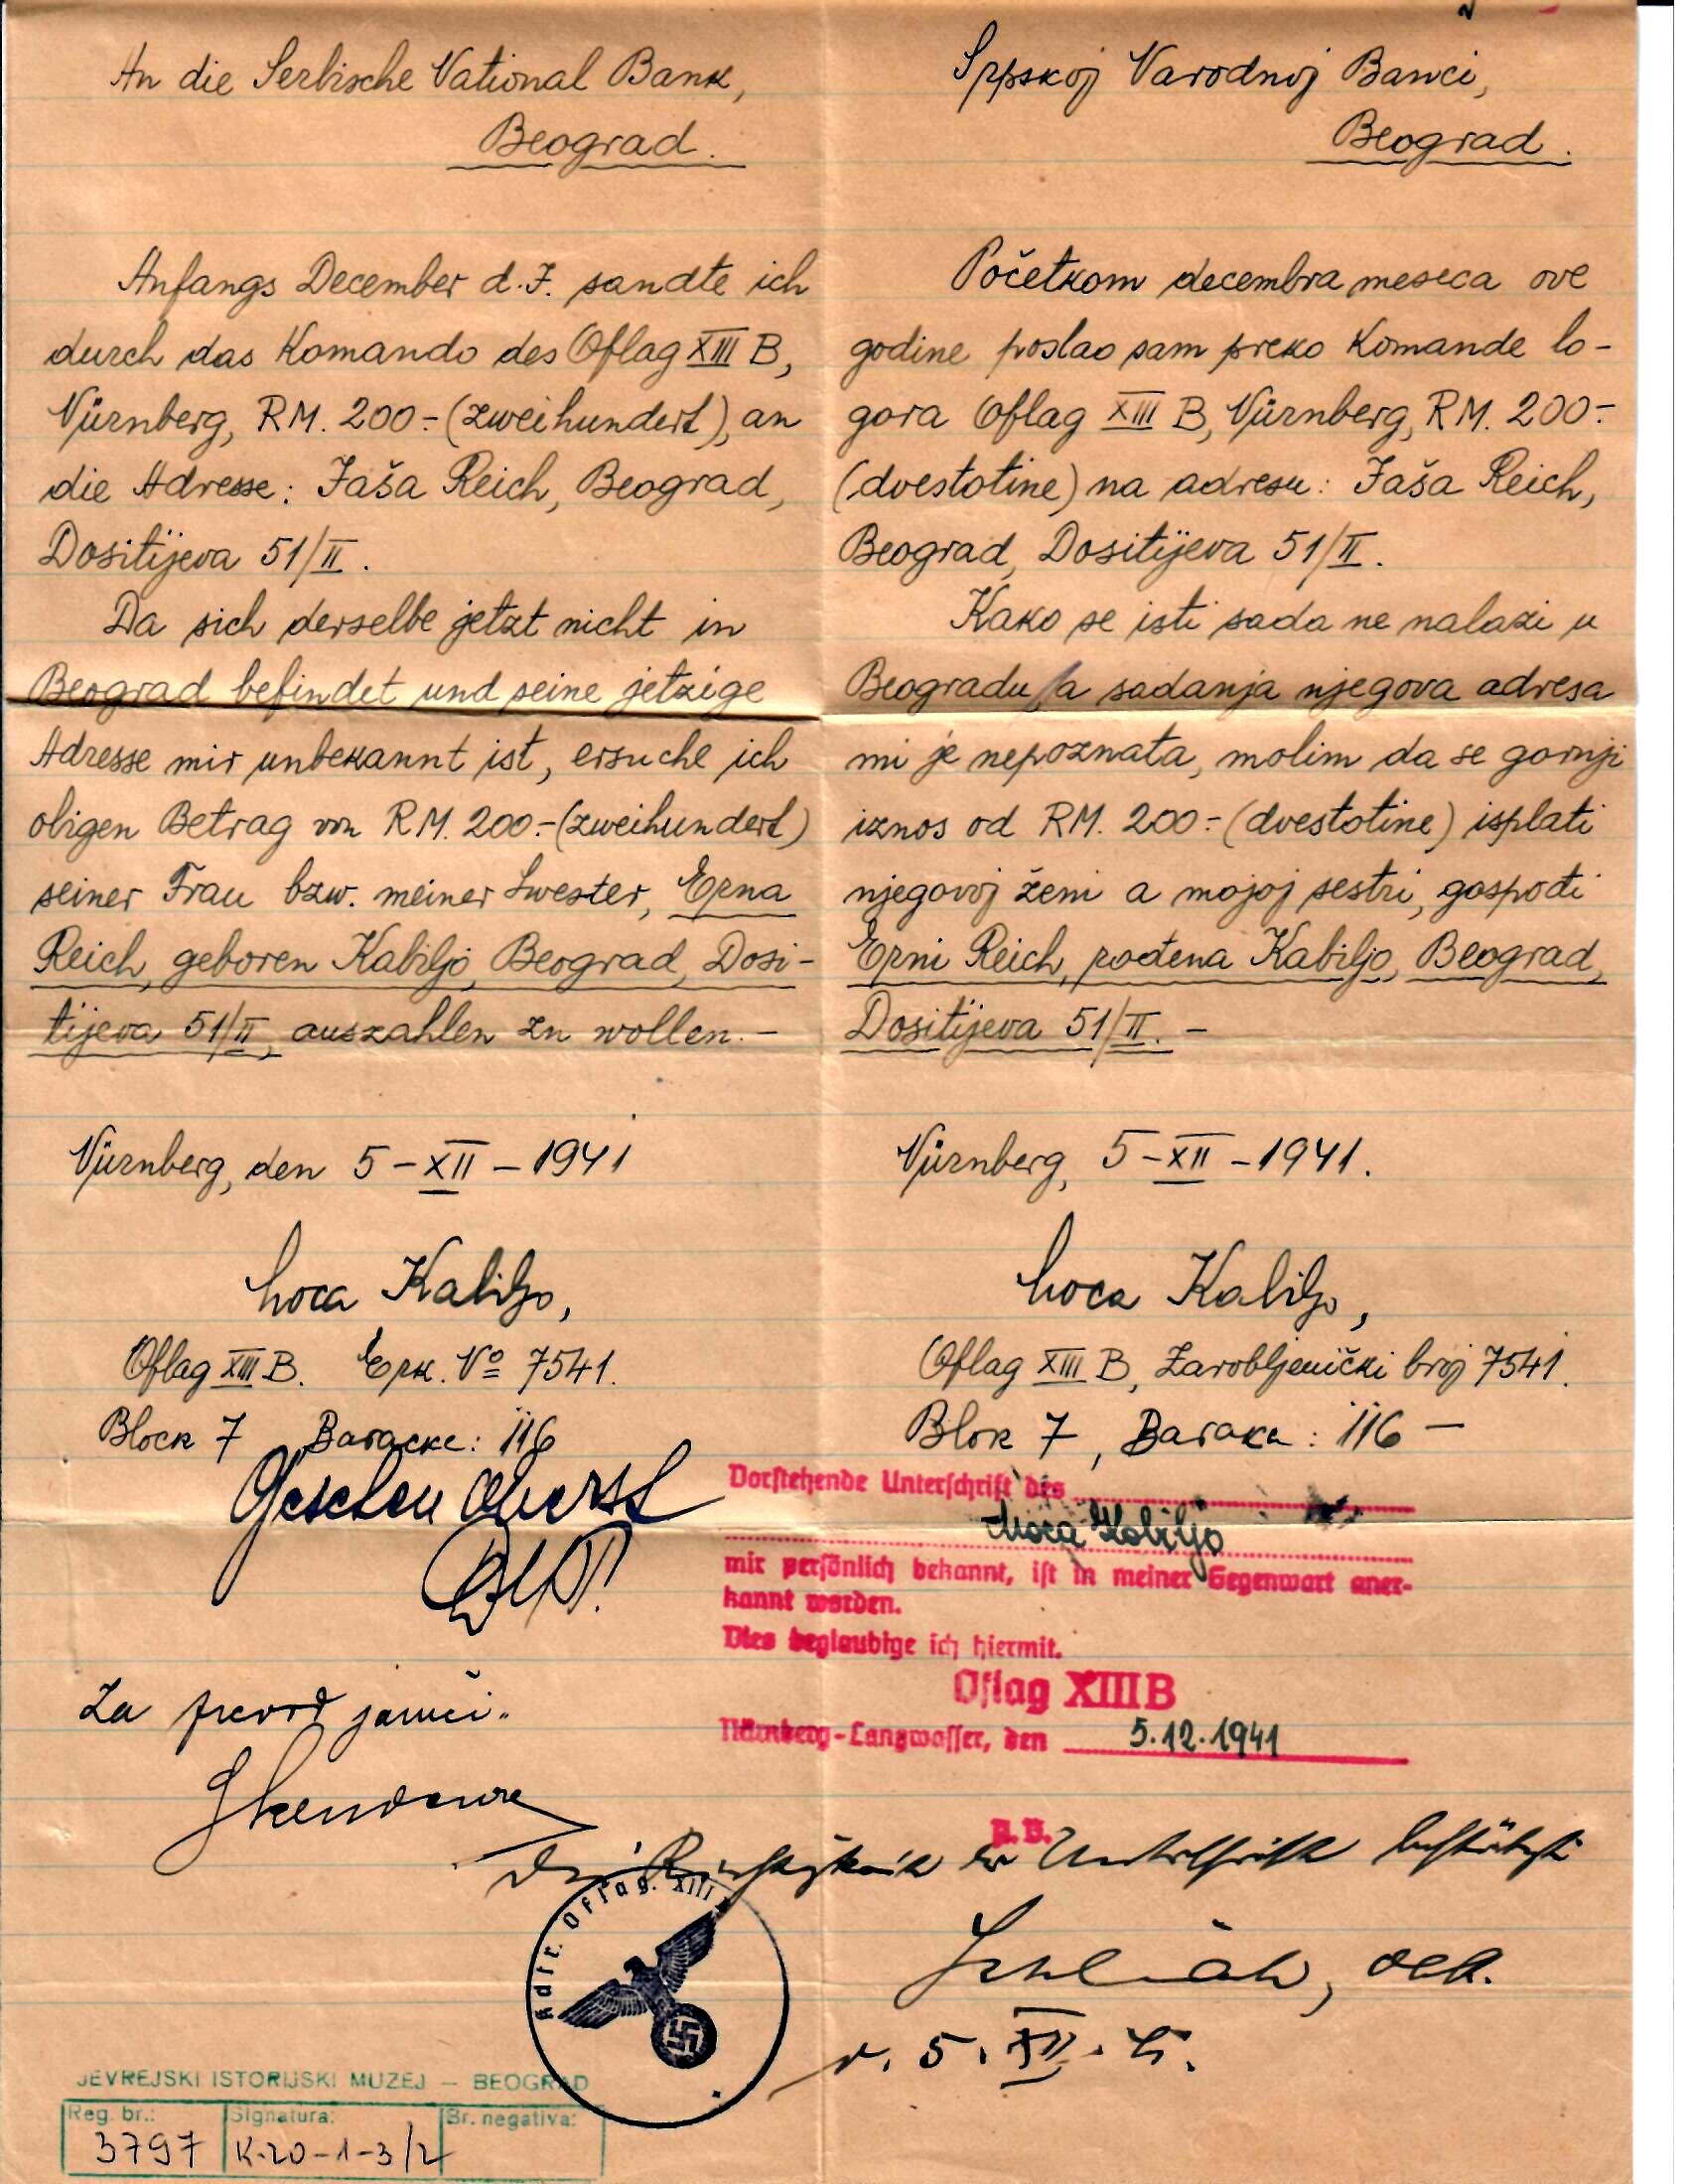 An die Serbische National Bank,
Beograd.
Anfangs December d. J. sandte ich
durch das Komando des Oflag XIII B,
Nürnberg, RM. 200.- (zweihundert), an
die Adresse: Jaša Reich, Beograd,
Dositijeva 51/II.
Da sich derselbe jetzt nicht in
Beograd befindet und seine jetzige
Adresse mir unbekannt ist, ersuche ich
obigen Betrag von RM. 200.- (zweihundert)
seiner Frau bzw. meiner Swester, Erna
Reich, geboren Kabiljo, Beograd, Dosi-
tijeva 51/II, auszahlen zu wollen. -
Nürnberg, den 5-XII-1941
Moca Kabiljo,
Oflag XIII B. Erk. No 7541.
Block 7 Baracke: 116
Gesehen Oberst
Za prevod jamči
Srpskoj Narodnoj Banci,
Beograd.
Početkom decembra meseca ove
godine poslao sam preko Komande lo-
gora Oflag XIII B, Nürnberg, RM. 200.-
(dvestotine) na adresu: Jaša Reich,
Beograd, Dositijeva 51/II.
Kako se isti sada ne nalazi u
Beogradu, a sadanja njegova adresa
mi je nepoznata, molim da se gornji
iznos od RM. 200.- (dvestotine) isplati
njegovoj ženi a mojoj sestri, gospođi
Erni Reich, rođena Kabiljo, Beograd,
Dositijeva 51/II. -
Nürnberg, 5-XII-1941.
Moca Kabiljo,
Oflag XIII B, Zarobljenički broj 7541.
Blok 7, Baraka: 116 -
Vorstehende Unterschrift des
Moca Kabiljo
mir persönlich bekannt, ist in meiner Gegenwart aner-
kannt worden.
Dies beglaubige ich hiermit.
Oflag XIII B
Nürnberg-Langwasser, den 5.12.1941
Die Richtigkeit der Unterschrift bestätigt
5. XII. 41.
Kdtr. Oflag. XIII
JEVREJSKI ISTORIJSKI MUZEJ – BEOGRAD
Reg. br.: Signatura: Br. negativa:
3797 K-20-1-3/2